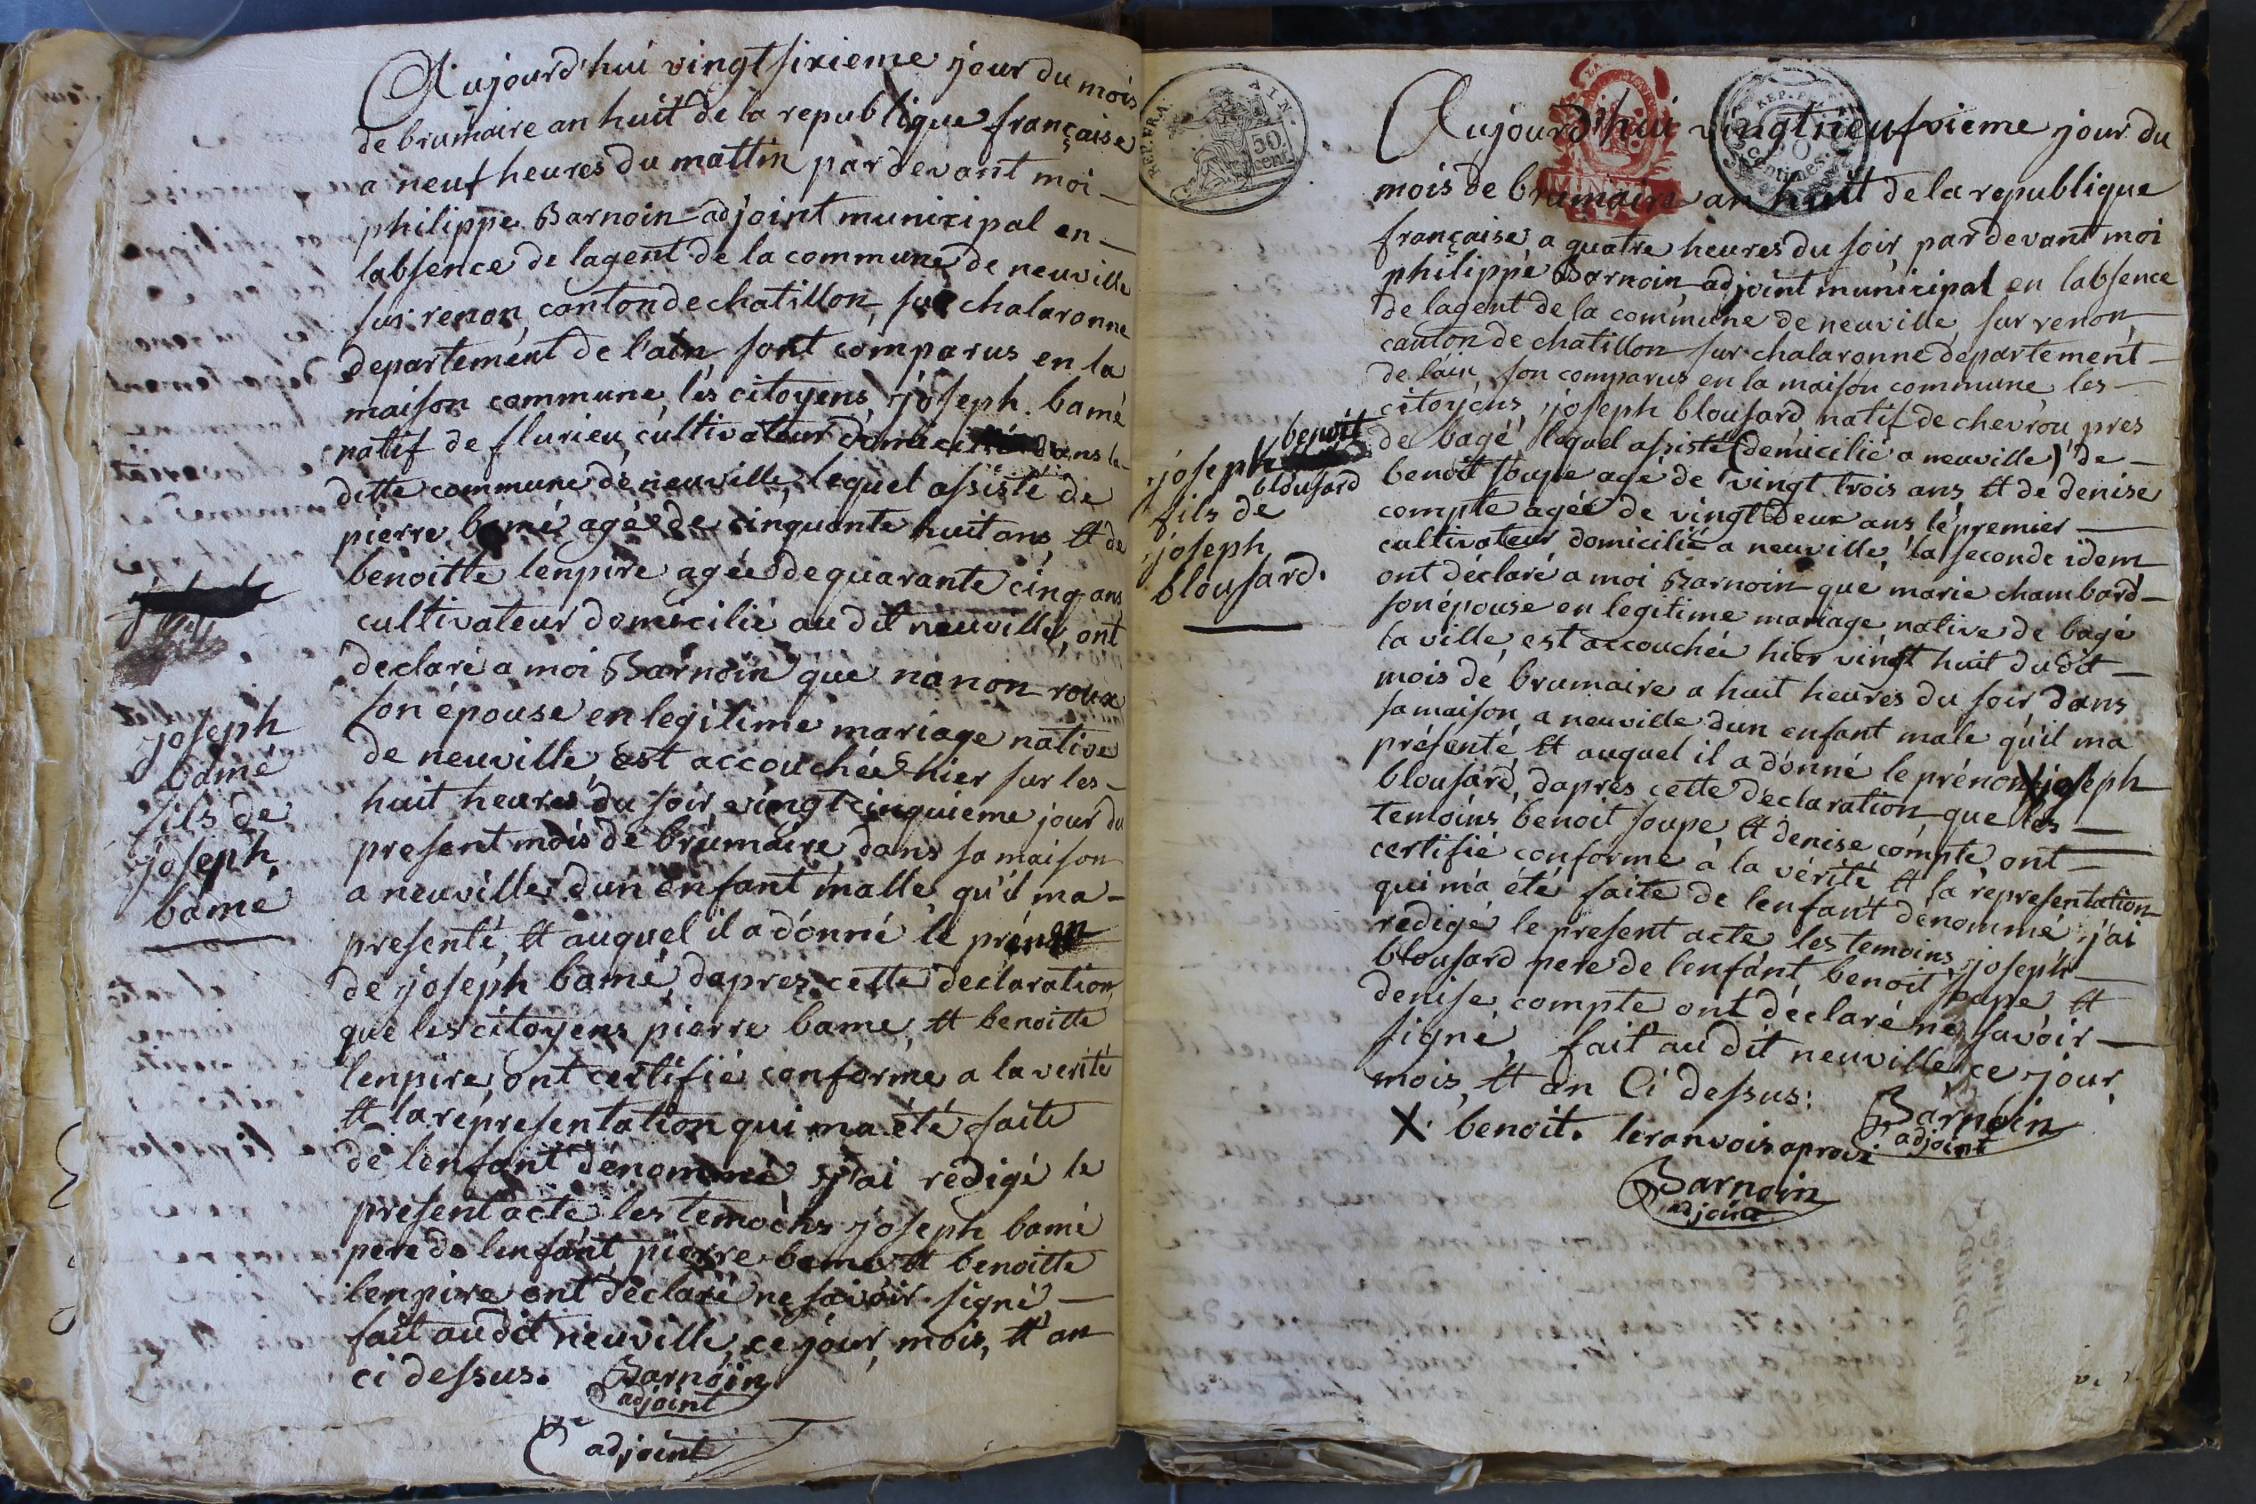 Aujourd'hui vingtsixieme jour du mois
de brumaire an huit de la republique française
a neuf heures du mattin par devant moi
philippe Barnoin adjoint municipal en
labsence de lagent de la commune de neuville
sur renon, canton de chatillon, sur chalaronne
departement de l'ain, sont comparus en la
maison commune, les citoyens, joseph bamé
natif de flurieu, cultivateur dans la
ditte commune de neuville, lequel assisté de
pierre bamé agé de cinquante huit ans, et de
benoitte lenpire agée de quarante cinq ans
cultivateur domicilié au dit neuville, ont
declaré a moi Barnoin que nanon roux
son épouse en legitime mariage native
de neuville, est accouchée hier sur les
huit heures du soir, vingtcinquieme jour du
present mois de brumaire dans sa maison
a neuville, dun enfant malle, qu'il ma
presenté, et auquel il a donné le prénom
de joseph bamé, daprez cette declaration
que les citoyens pierre bame, et benoitte
lenpire, ont certifié conforme a la verité
et la representation qui ma été faite
de lenfant dénommé, j'ai rédigé le
present acte, les temoins joseph bamé
pere de lenfant, pierre bame et benoitte
lenpire ont déclaré ne savoir signé,
fait au dit neuville, ce jour, mois, et an
ci dessus. Barnoin
adjoint
adjoint
joseph
bamé
fils de
joseph
bamé
REP. FRA.
50
cent
REP. FRA.
centimes
Aujourd'hui vingt neufvieme jour du
mois de brumaire an huit de la republique
française, a quatre heures du soir, par devant moi
philippe Barnoin, adjoint municipal en labsence
de lagent de la commune de neuville, sur renon,
canton de chatillon sur chalaronne departement
de l'ain, son comparus en la maison commune les
citoyens, joseph blousard, natif de chevrou pres
de bagé, lequel assisté (domicilié a neuville) de
benoit soupe agé de vingt trois ans, et de denise
compte agée de vingt deux ans, le premier
cultivateur domicilié a neuville, la seconde idem
ont déclaré a moi Barnoin que marie chambard
son épouse en legitime mariage native de bagé
la ville, est accouchée hier vingt huit du dit
mois de brumaire a huit heures du soir dans
sa maison, a neuville dun enfant male qu'il ma
présenté, et auquel il a donné le prénom X joseph
blousard, daprès cette declaration que les
temoins benoit soupe et denise compte ont
certifié conforme à la vérité et la representation
qui m'a été faite de lenfant dénommé, j'ai
redigé le present acte les temoins, joseph
blousard pere de lenfant, benoit soupe et
denise compte ont déclaré ne savoir
signé, fait au dit neuville, ce jour,
mois, et an Ci dessus:
Barnoin
adjoint
X. benoit. leranvois aprouvé
Barnoin
adjoint
joseph benoit
blousard
fils de
joseph
blousard.